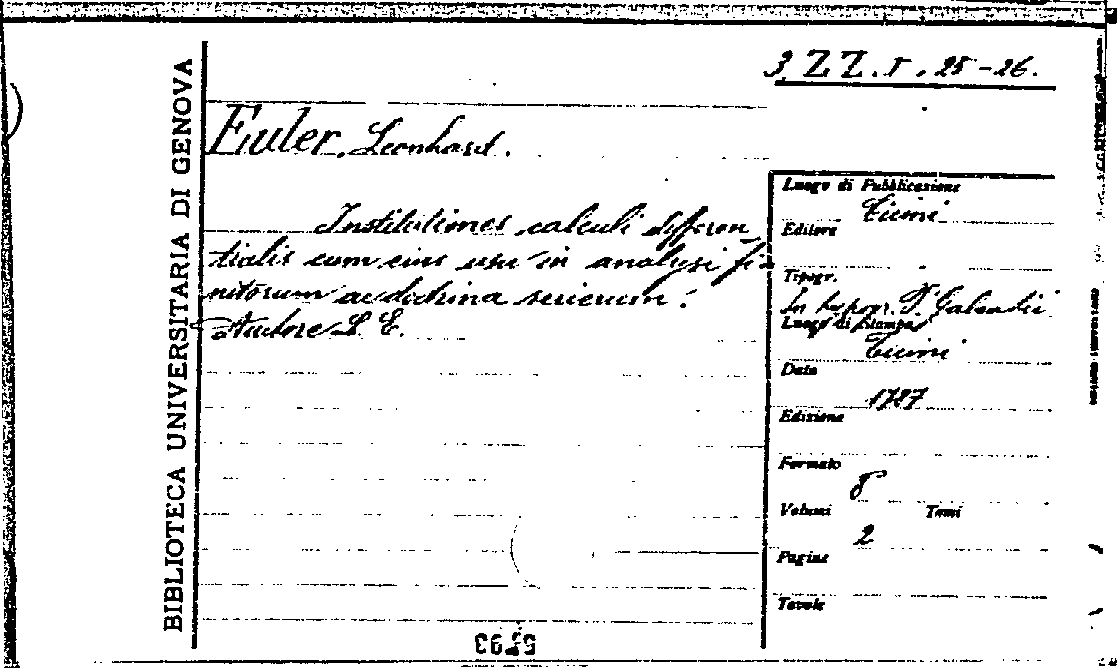 3. Z Z . 5 . 25 - 26.
BIBLIOTECA UNIVERSITARIA DI GENOVA
Euler, Leonhard.
Institutiones calculi differen
tialis cum eius usu in analysi fi
nitorum ac doctrina serierum.
Auctore L. E.
Luogo di Pubblicazione
Ticini
Editore
Tipogr.
In typogr. P. Galeatii
Luogo di Stampa
Ticini
Data
1787
Edizione
Formato
8
Volumi Tomi
2
Pagine
Tavole